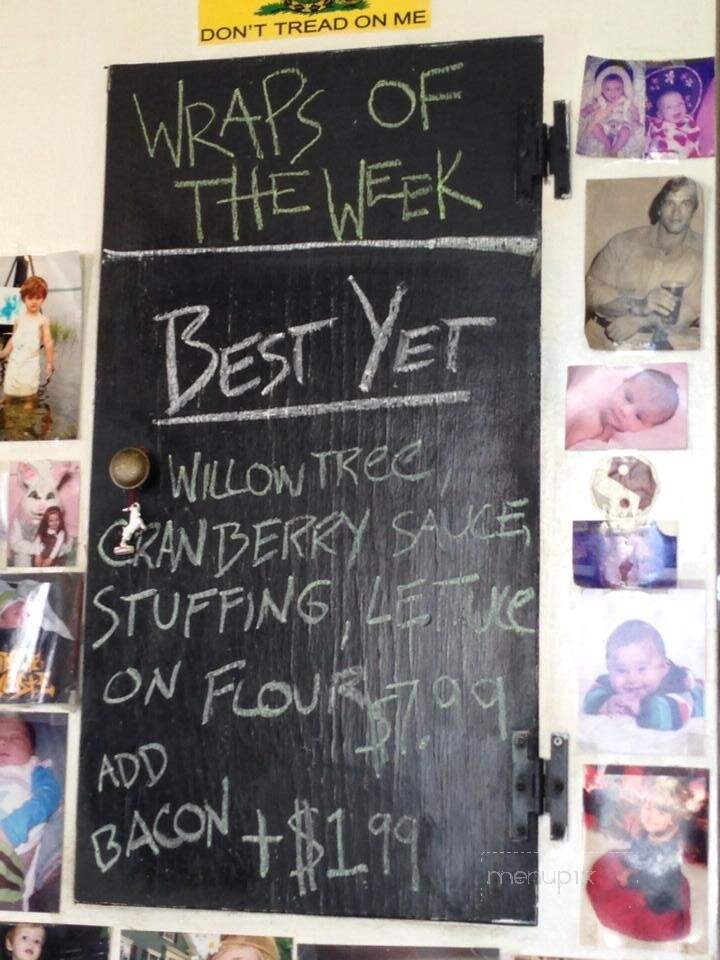 DON'T TREAD ON ME
WRAPS OF
THE WEEK
BEST YET
WILLOW TREE,
CRANBERRY SAUCE,
STUFFING, LETTUCE
ON FLOUR $7.99
ADD
BACON + $1.99
menupix